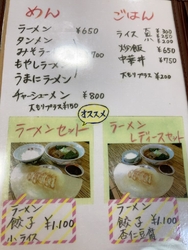 めん
ラーメン ¥650
タンメン
みそラーメン
もやしラーメン
うまにラーメン
チャーシューメン ¥800
大もりプラス¥150
ごはん
ライス
炒飯 ¥650
中華丼 ¥750
大もりプラス ¥200
オススメ
ラーメンセット
ラーメン
レディースセット
ラーメン
餃子 ¥1.100
小ライス
ラーメン
餃子 ¥1.100
杏仁豆腐